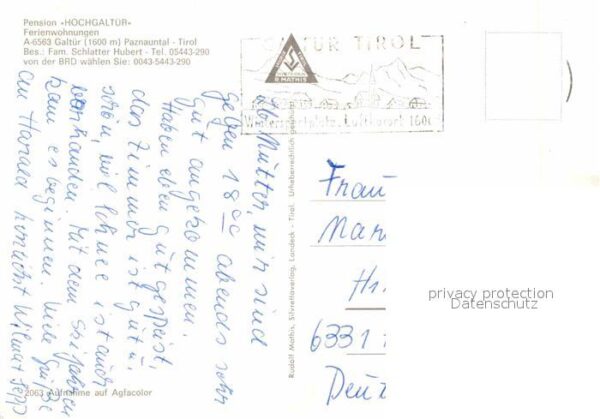 Pension »HOCHGALTÜR«
Ferienwohnungen
A-6563 Galtür (1600 m) Paznauntal - Tirol
Bes.: Fam. Schlatter Hubert - Tel. 05443-290
von der BRD wählen Sie: 0043-5443-290
GALTÜR TIROL
R. MATHIS
Wintersportplatz, Luftkurort 1600
Mutter, wir sind
gegen 18⁰⁰ abends sehr
gut angekommen.
Haben eben gut gespeist,
das Zimmer ist gut u.
schön, viel Schnee ist auch
vorhanden. Mit dem Skifahren
kann es beginnen. Viele Grüße
an Harald herzlichst Wilma + Sepp
Rudolf Mathis, Silvrettaverlag, Landeck - Tirol. Urheberrechtlich
Frau
6331
2063 Aufnahme auf Agfacolor
privacy protection
Datenschutz